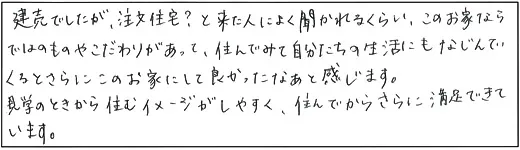 建売でしたが、注文住宅？と来た人によく聞かれるくらい、このお家なら
ではのものやこだわりがあって、住んでみて自分たちの生活にもなじんでい
くるとさらにこのお家にして良かったなあと感じます。
見学のときから住むイメージがしやすく、住んでからさらに満足できて
います。